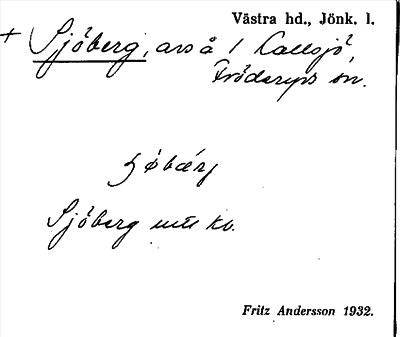 Västra hd., Jönk. l.
+ Sjöberg, avs å 1 Callsjö,
Fröderyps sn.
Sjöberg
Fritz Andersson 1932.